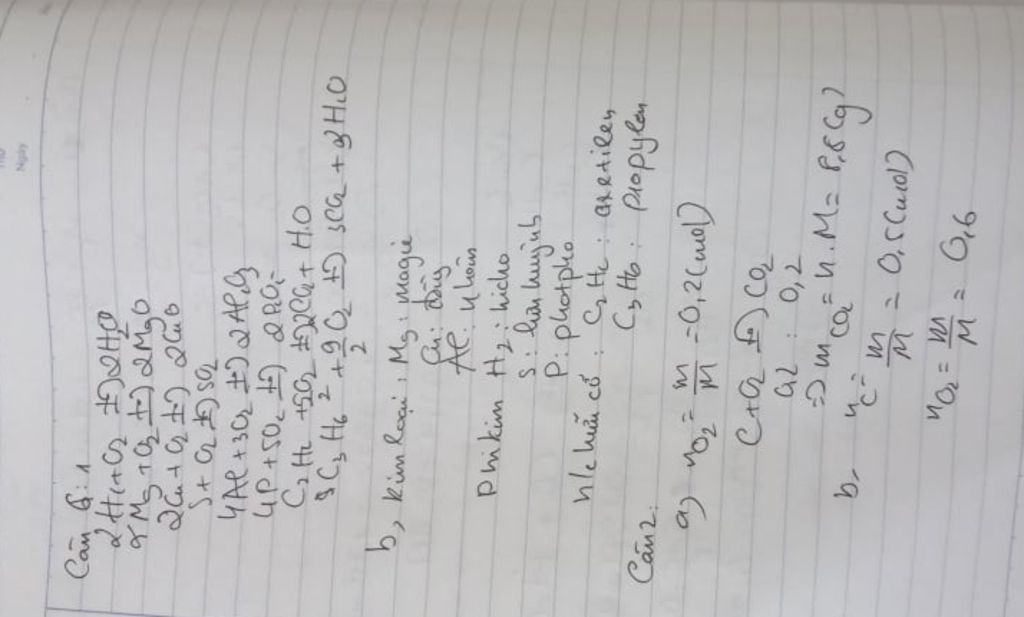 Câu 1:
2H₂ + O₂ t°→ 2H₂O
2Mg + O₂ t°→ 2MgO
2Cu + O₂ t°→ 2CuO
S + O₂ t°→ SO₂
4Al + 3O₂ t°→ 2Al₂O₃
4P + 5O₂ t°→ 2P₂O₅
C₂H₂ + 5O₂ t°→ 2CO₂ + H₂O
C₃H₆ + 9/2 O₂ t°→ 3CO₂ + 3H₂O
b, kim loại: Mg: magie
Cu: đồng
Al: nhôm
phi kim H₂: hidro
S: lưu huỳnh
P: photpho
h/c hữu cơ: C₂H₂: axetilen
C₃H₆: propylen
Câu 2.
a) nO₂ = m/M = 0,2 (mol)
C + O₂ t°→ CO₂
0,2 : 0,2
=> m CO₂ = n.M = 8,8 (g)
b, n C = m/M = 0,5 (mol)
nO₂ = m/M = 0,6